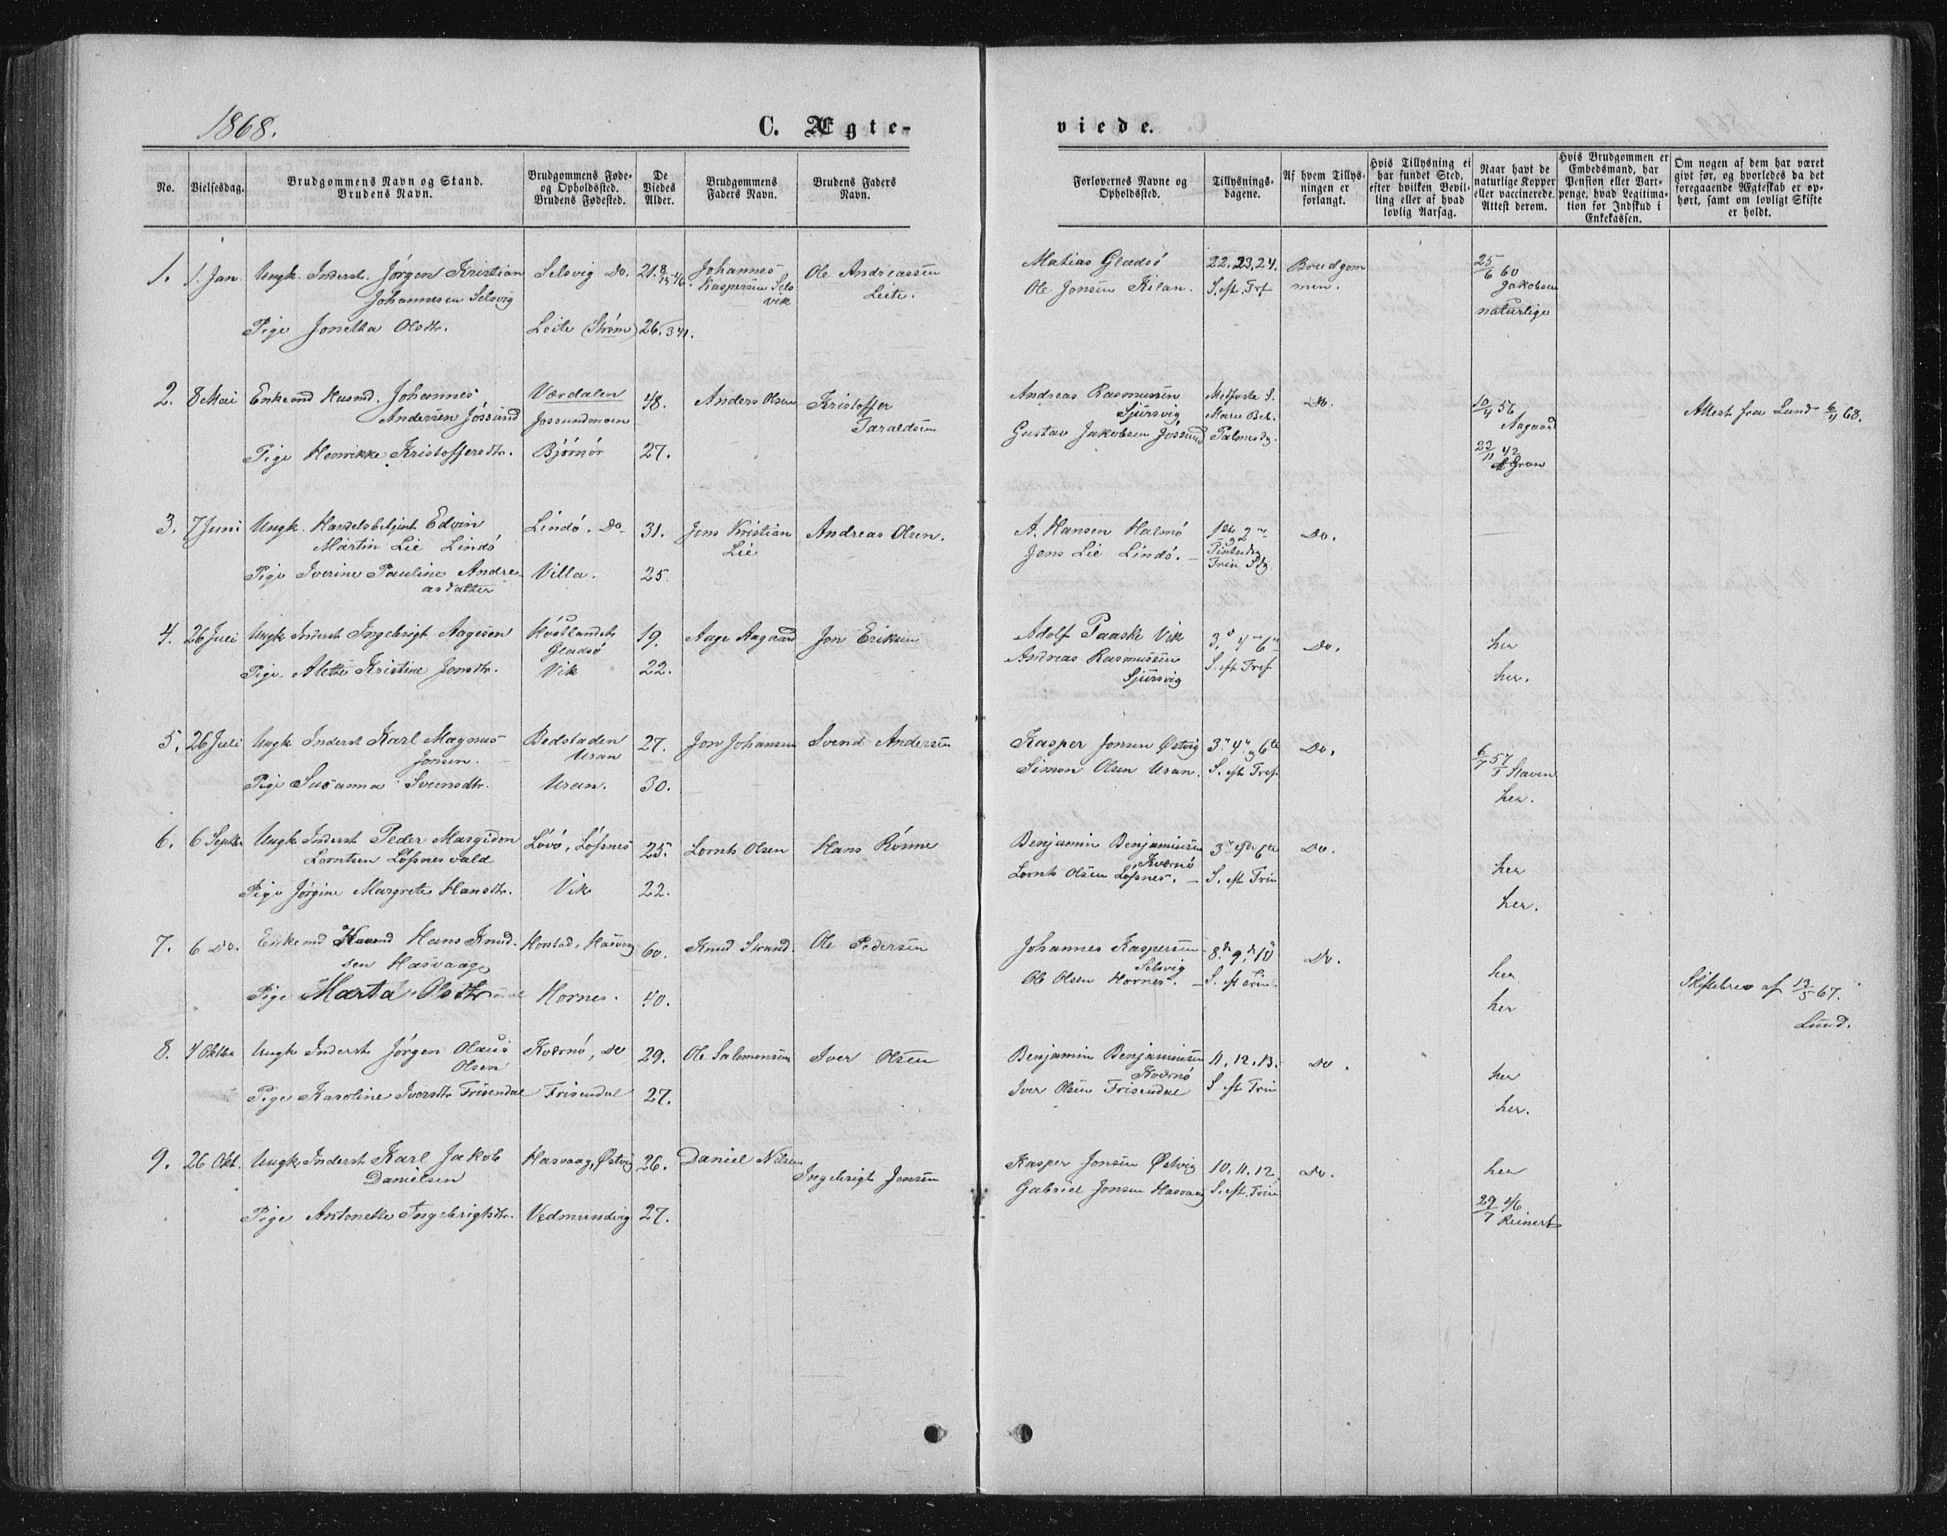 1868.
C. Ægte-
viede.
No.
Vielsesdag.
Brudgommens Navn og Stand.
Brudens Navn.
Brudgommens Føde-
og Opholdssted.
Brudens Fødested.
De
Viedes
Alder.
Brudgommens
Faders Navn.
Brudens Faders
Navn.
Forlovernes Navne og
Opholdssted.
Tillysnings-
dagene.
Af hvem Tillys-
ningen er
forlangt.
Hvis Tillysning ei
har fundet Sted,
efter hvilken Bevil-
ling eller af hvad
lovlig Aarsag.
Naar havt de
naturlige Kopper
eller vaccinerede.
Attest derom.
Hvis Brudgommen er
Embedsmand, har
Pension eller Vart-
penge, hvad Legitima-
tion for Indskud i
Enkekassen.
Om nogen af dem har været
givt før, og hvorledes da det
foregaaende Ægteskab er op-
hørt, samt om lovligt Skifte
er holdt.
1. 1. Jan Ungk. Inderst. Jørgen Kristian Selsvig Do. 21. Johannes Ole Andreassen
Johannesen Selsvig Kaspersen Sels Leite.
vik
Pige Jonetta Olsdtr. Leite (Strøm) 26.
Matias Gladsø 22. 23. 24. Brudgom 25/6 60
Ole Jonsen Kilan. S. eft. Trf men. Jakobsen
naturlige
2. 8 Mai Enkemd Husmd. Johannes Værdalen 48. Anders Olsen Kristoffer
Andersen Jøssund Jossundmoen Taraldsen
Pige Henrikke Kristoffersdtr. Bjørnør 27.
Andreas Rasmussen Midfaste S. Do. 10/4 56 Attest fra Lund 6/4 68.
Sjursvig Maria Beb. Aagaard
Gustav Jakobsen Jøssund Palmesdg. 22/11 42
Gron
3. 7 Juni Ungk. Handelsbetjent Edvin Lindø. Do 31. Jens Kristian Andreas Olsen.
Martin Lie Lindø Lie
Pige Iverine Pauline Andre- Villa. 25.
asdatter
A. Hansen Halmø 1ste 2 Do.
Jens Lie Lindø. Pintsedg
Trin. Sdg.
4. 26 Juli Ungk Inderst Ingebrigt Aagesen 19. Aage Aagaard Jon Eriksen
Gladsø
Pige. Alette Kristine Jonsdtr. Vik 22.
Adolf Paaske Vik 3. 4 6 Do. her
Andreas Rasmussen S. eft Tref her.
Sjursvig
5. 26 Juli Ungk Inderst Karl Magnus Bedstaden 27. Jon Johansen Svend Andersen
Jonsen. Uran
Pige Susanna Svensdtr. Uran. 30.
Kasper Jonsen Østvig 3. 4 og 6te Do. 6/7 57
Simon Olsen Uran. S. eft Tref. Staven
her.
6. 6 Septbr Ungk Inderst Peder Margidon Løvø, Løfsnes 25. Lornts Olsen Hans Rønne
Lorntsen Løfsnes Fald
Pige Jørgine Margrete Hansdtr. Vik 22.
Benjamin Benjaminsen 3 6te Do. her
Kværnø
Lornts Olsen Løfsnes. S. eft Trin her.
7. 6 Do. Enkemd Hans Knud- Horstad, Hasvaag 60. Knud Strand. Ole Pedersen
sen Hasvaag
Pige Marta Olsdtr Hornes. 40.
Johannes Kaspersen 8de 9de 10 Do. her
Selsvig
Ole Olsen Hornes. S. eft Trin. her Skiftebrev af 13/5 67.
Lund.
8. 4 Oktbr Ungk Inderst Jørgen Olaus Kværnø, Do 29. Ole Salomonsen Iver Olsen
Olsen
Pige Karoline Iversdtr Frisendal Frisendal 27.
Benjamin Benjaminsen 11. 12. 13. Do. her
Kværnø
Iver Olsen Frisendal S eft Trin her.
9. 26 Okt. Ungk Inderst Karl Jakob Hasvaag, Østvig 26. Daniel Nilsen Ingebrigt Jonsen
Danielsen
Pige Antonette Ingebrigtsdtr. Vedmundvig 27.
Kasper Jonsen Østvig 10. 11. 12 Do. her
Gabriel Jonsen Hasvaag S. eft. Trin 29/7 46
Reinert